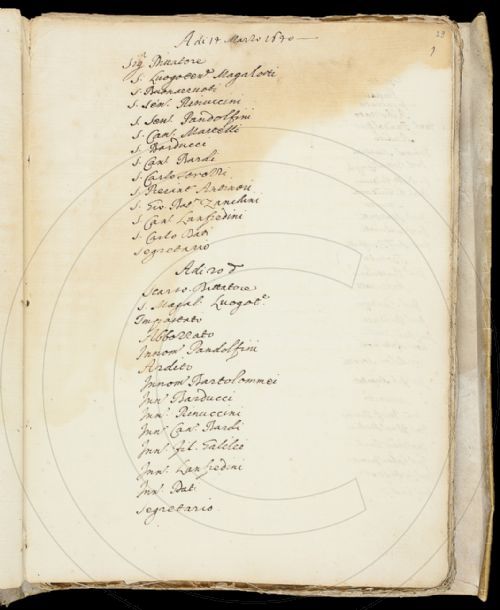 29
A di 14 Marzo 1640
Sig. Dittatore
S. Luogoten.te Magalotti
S. Buonarruoti
S. Sen. Rinuccini
S. Sen. Pandolfini
S. Can. Martelli
S. Barducci
S. Can. Bardi
S. Carlo Strozzi
S. Antinori
S. Gio Bat.
S. Can. Lanfredini
S. Carlo Dati
Segretario
A di 20 d.
Dittatore
S. Magal. Luogot.e
Impastato
Abbozzato
Innom. Pandolfini
Ardito
Innom. Bartolommei
Inn. Barducci
Inn. Rinuccini
Inn. Can. Bardi
Inn. Galileo
Inn. Lanfredini
Inn. Dati
Segretario